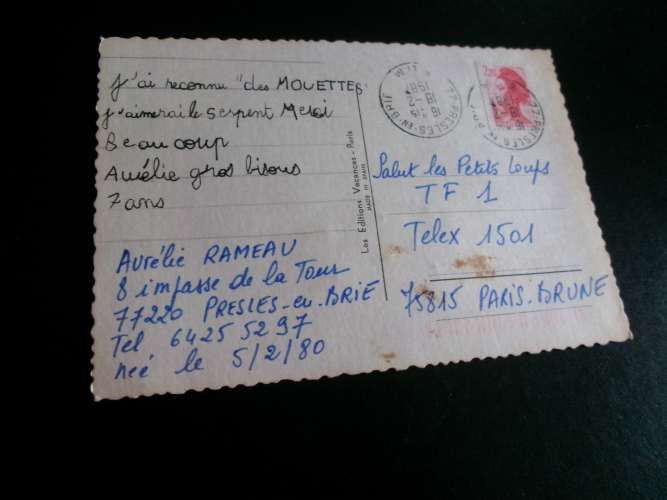 J'ai reconnu "des MOUETTES"
j'aimerai le serpent Merci
Beaucoup
Aurélie gros bisous
7 ans
Aurélie RAMEAU
8 impasse de la Tour
77220 PRESLES-en-BRIE
Tel 64 25 52 97
neé le 5/2/80
Les Editions Vacances - Paris
MADE IN SPAIN
77-PRESLES-EN-BRIE
2,20
Salut les Petits Loups
TF 1
Telex 1501
75815 PARIS-BRUNE